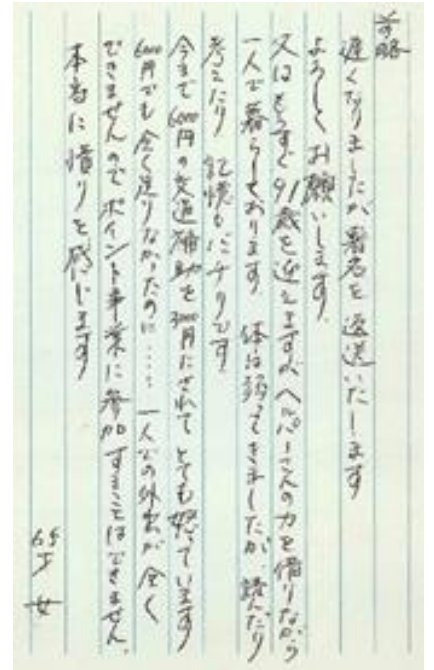 前略
遅くなりましたが署名を返送いたします
よろしくお願いします。
父はもうすぐ91歳を迎えますが、ヘルパーさんの力を借りながら
一人で暮らしております。体は弱ってきましたが、読んだり
考えたり記憶もバッチリです
今まで6000円の交通補助を3000円にされてとても怒っています
6000円でも全く足りなかったのに…… 一人での外出が全く
できませんのでポイント事業に参加することはできません。
本当に憤りを感じます
65才 女